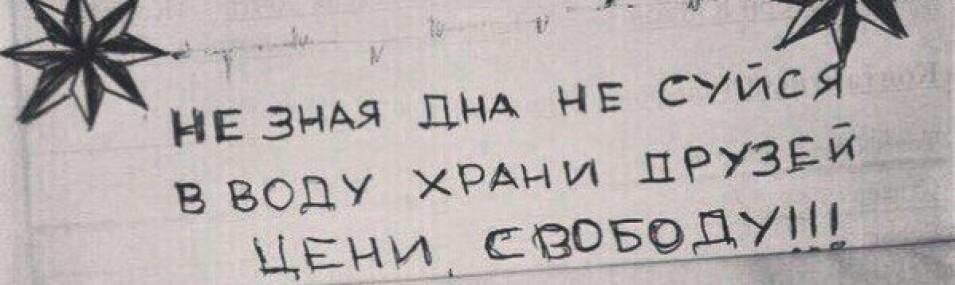 НЕ ЗНАЯ ДНА НЕ СУЙСЯ
В ВОДУ ХРАНИ ДРУЗЕЙ
ЦЕНИ СВОБОДУ!!!